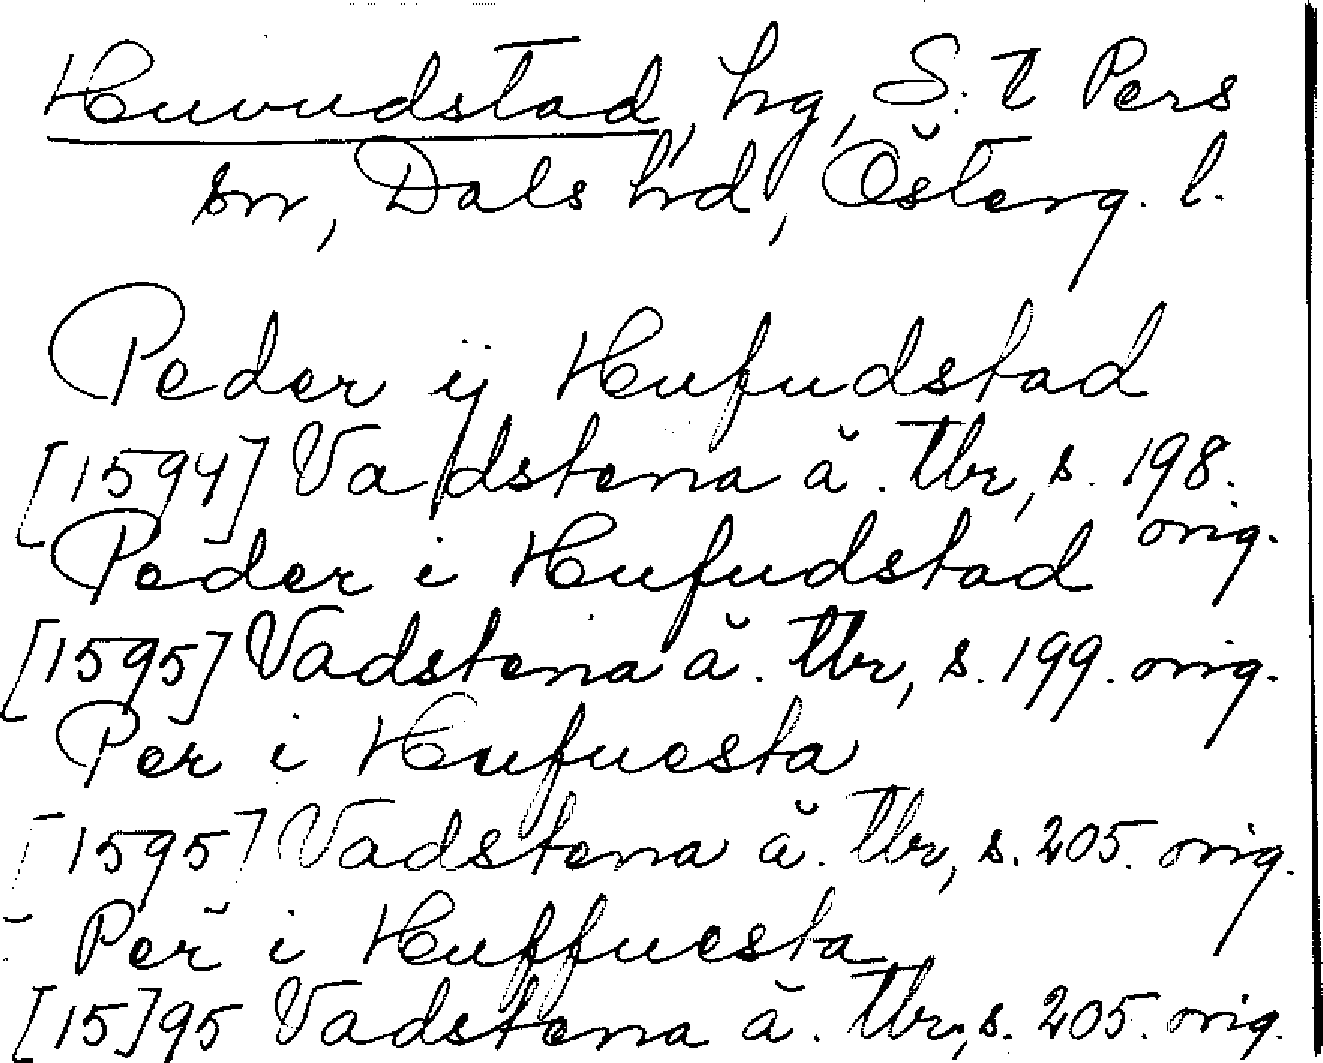 Huvudstad, hg, S:t Pers
sn, Dals hd, Österg. l.
Peder ij Hufudstad
[1594] Vadstena ä. tbr, s. 198.
orig.
Peder i Hufudstad
[1595] Vadstena ä. tbr, s. 199. orig.
Per i Hufuesta
[1595] Vadstena ä. tbr, s. 205. orig.
Per i Huffuesta
[15]95 Vadstena ä. tbr, s. 205. orig.